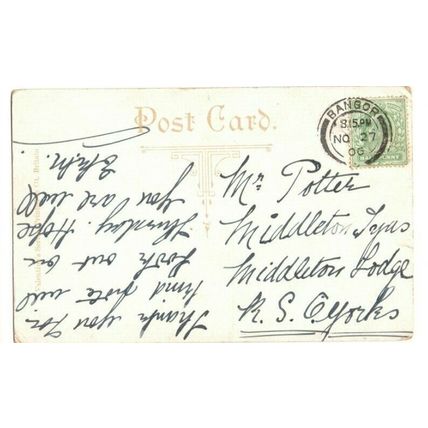 Post Card.
BANGOR
8.15 PM
NO 27
06
HALFPENNY
Mr Potter
Middleton Tyas
Middleton Lodge
R. S. O. Yorks
Thank you for
kind note will
look out on
Thursday. Hope
you are well